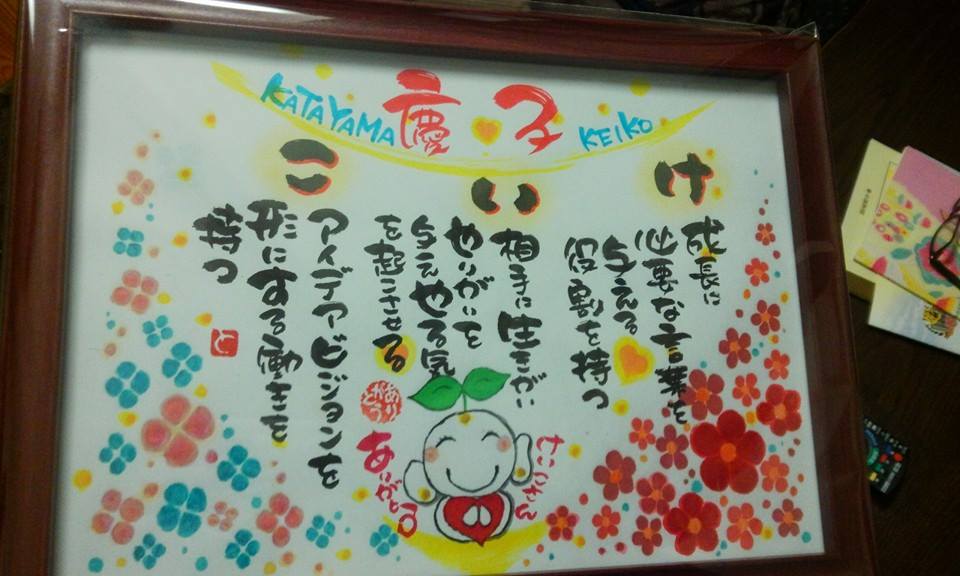 KATAYAMA 慶子 KEIKO
け
成長に
必要な言葉を
与える
役割を持つ
い
相手に生きがい
やりがいを
与えやる気
を起こさせる
こ
アイデアービジョンを
形にする働きを
持つ
と
ありがとう
けいこさん
ありがとう